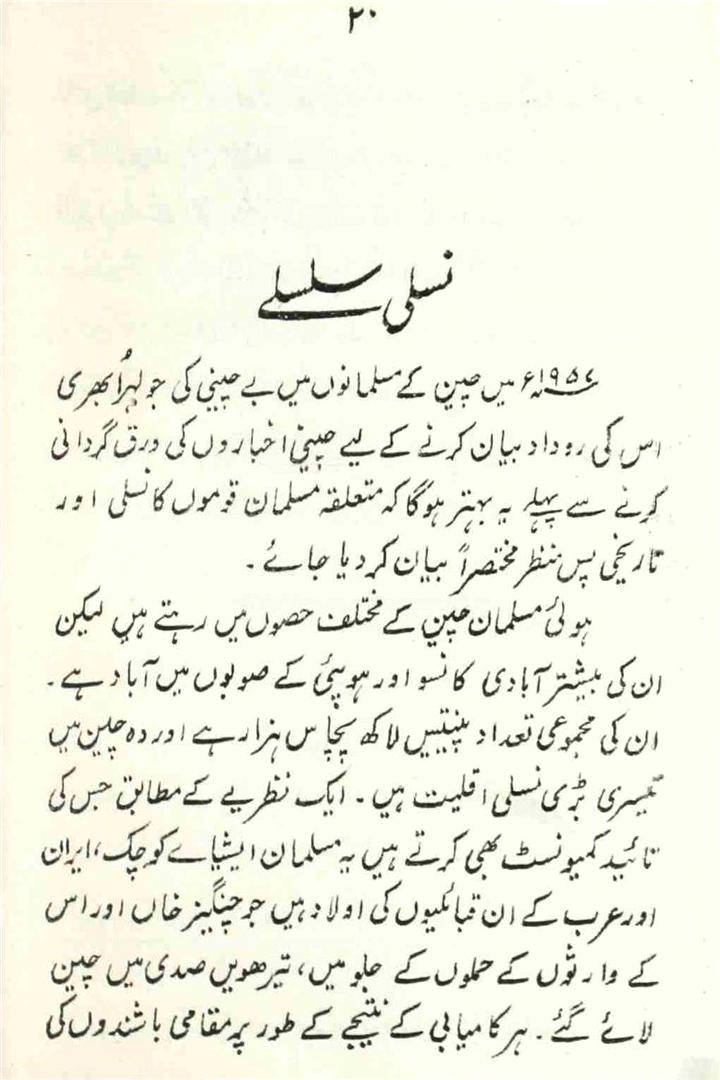 ۲۰
نسلی سلسلے
۱۹۵۷ء میں چین کے مسلمانوں میں بے چینی کی جو لہر اُبھری
اس کی روداد بیان کرنے کے لیے چینی اخباروں کی ورق گردانی
کرنے سے پہلے یہ بہتر ہوگا کہ متعلقہ مسلمان قوموں کا نسلی اور
تاریخی پس منظر مختصراً بیان کر دیا جائے ۔
ہوئی مسلمان چین کے مختلف حصوں میں رہتے ہیں لیکن
ان کی بیشتر آبادی کانسو اور ہوپیئی کے صوبوں میں آباد ہے ۔
ان کی مجموعی تعداد پنتیس لاکھ پچاس ہزار ہے اور وہ چین میں
تیسری بڑی نسلی اقلیت ہیں ۔ ایک نظریے کے مطابق جس کی
تائید کمیونسٹ بھی کرتے ہیں یہ مسلمان ایشیاے کوچک ، ایران
اور عرب کے ان قبائلیوں کی اولاد ہیں جو چنگیز خاں اور اس
کے وارثوں کے حملوں کے جلو میں ، تیرھویں صدی میں چین
لائے گئے ۔ ہر کامیابی کے نتیجے کے طور پر مقامی باشندوں کی